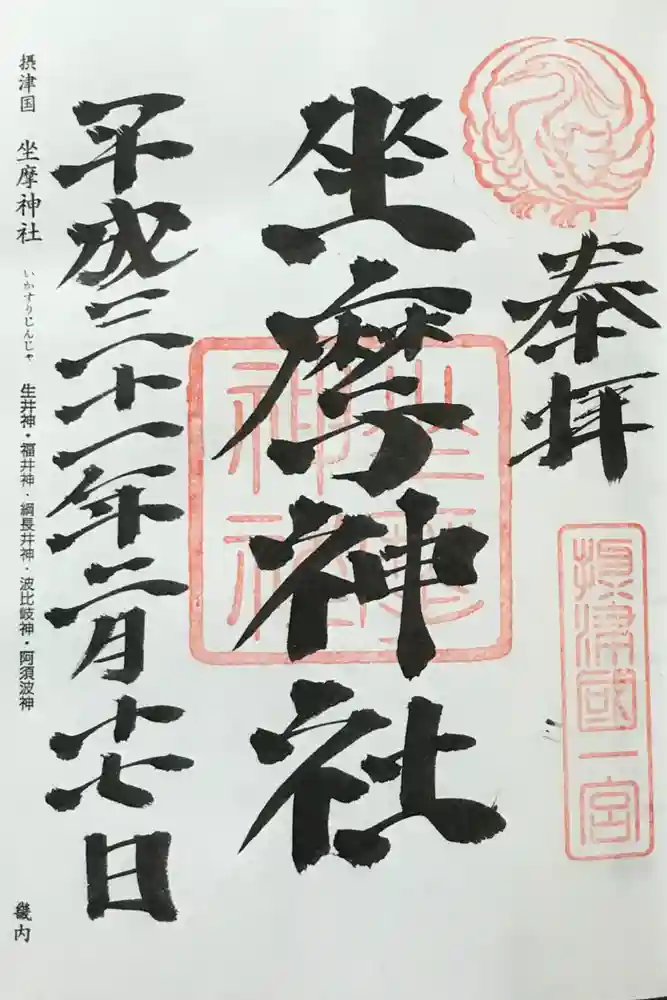 奉拝
摂津國一宮
坐摩神社
坐摩神社
平成三十一年二月十七日
摂津国 坐摩神社 いかすりじんじゃ 生井神・福井神・綱長井神・波比岐神・阿須波神 畿内